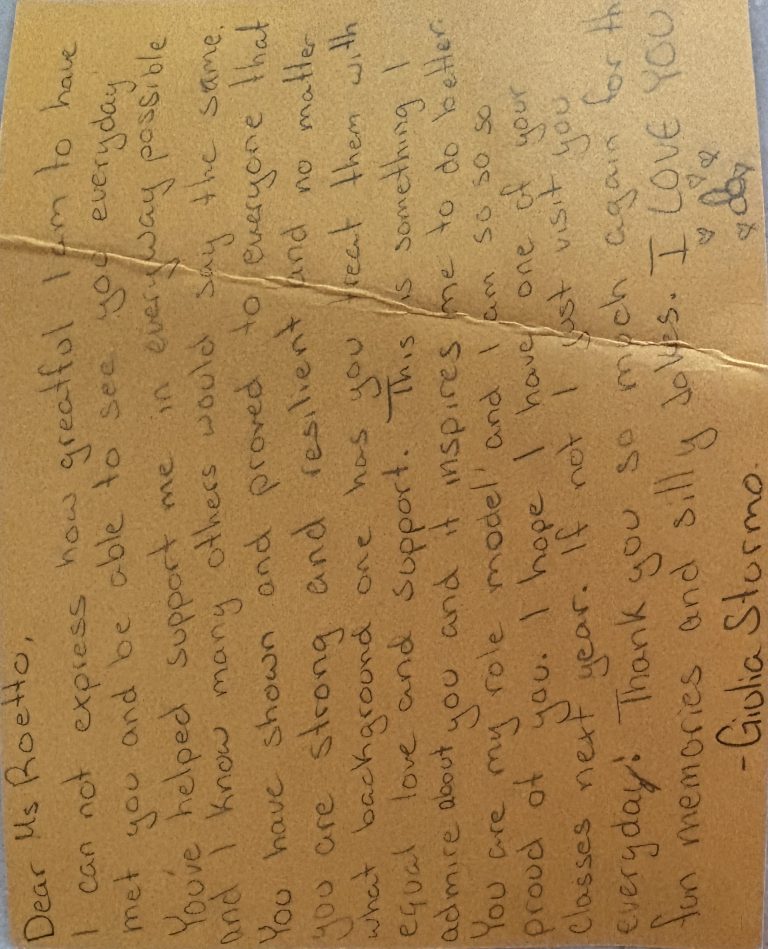 Dear Ms Roetto,
I can not express how greatful I am to have
met you and be able to see you everyday
You've helped support me in everyway possible
and I know many others would say the same.
You have shown and proved to everyone that
you are strong and resilient and no matter
what background one has you treat them with
equal love and support. This is something I
admire about you and it inspires me to do better.
You are my role model and I am so so so
proud of you. I hope I have one of your
classes next year. If not I just visit you
everyday! Thank you so much again for th
fun memories and silly jokes. I LOVE YOU
-Giulia Sturmo.